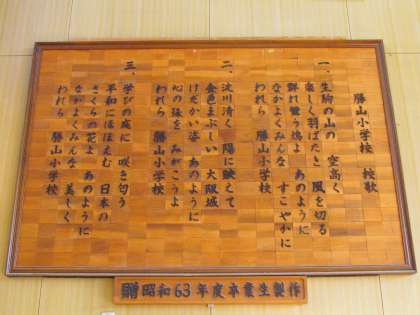 勝山小学校 校歌
一、生駒の山の 空高く
楽しく羽ばたき 風を切る
群れ鷺う鳩よ あのように
なかよくみんな すこやかに
われら 勝山小学校
二、淀川清く 陽に映えて
金色まぶしい 大阪城
けだかい姿 あのように
心の珠を みがこうよ
われら 勝山小学校
三、学びの庭に 咲き匂う
平和にほほえむ 日本の
さくらの花よ あのように
なかよくみんな 美しく
われら 勝山小学校
贈 昭和63年度卒業生製作